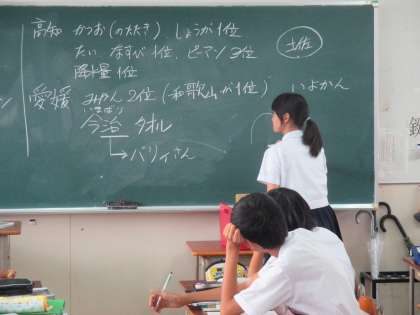 高知 かつお(のたたき) しょうが1位
たい なすび1位、ピーマン3位
降水量1位
土佐
愛媛 みかん2位(和歌山が1位) いよかん
いまばり
今治 タオル
→バリィさん